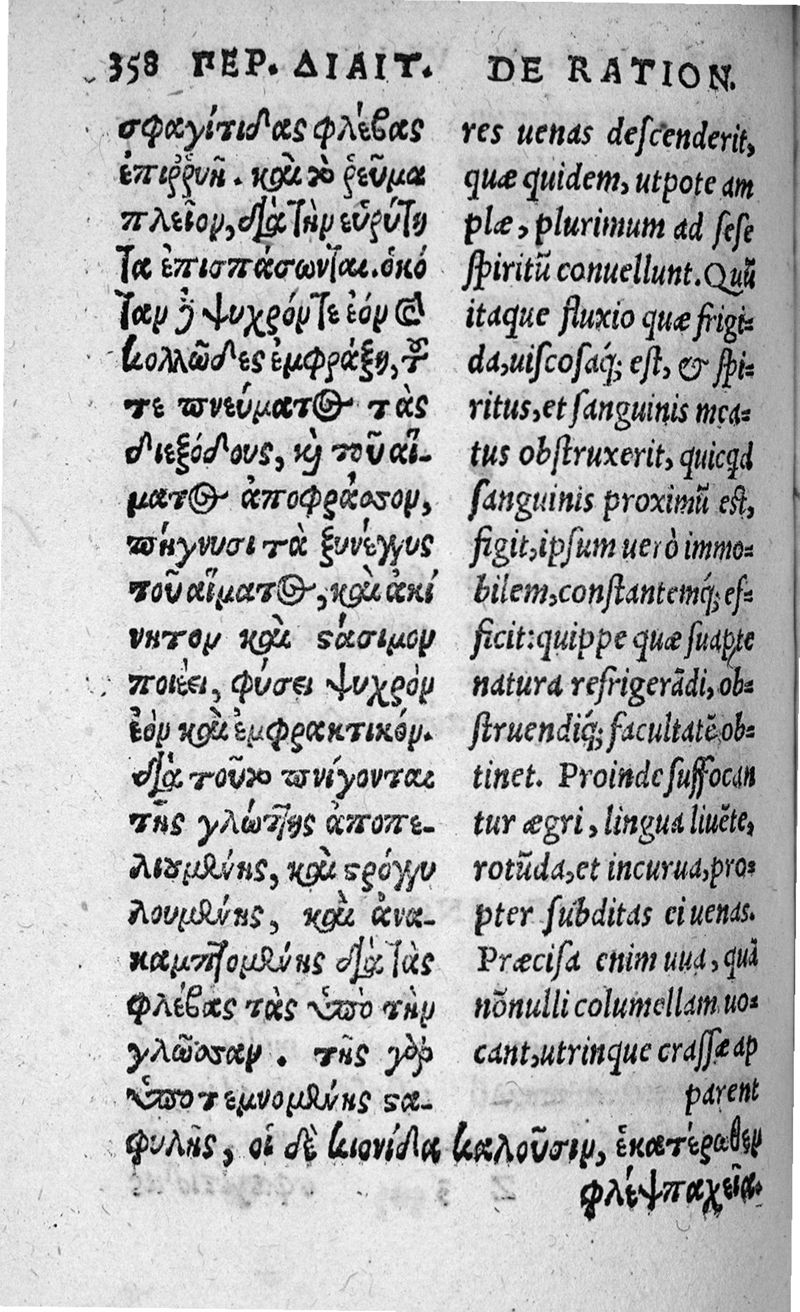 358 ΠΕΡ. ΔΙΑΙΤ.
σφαγίτιδας φλέβας
ἐπιῤῥυῇ. καὶ τὸ ῥεῦμα
πλεῖον, διὰ τὴν εὐρύτη
τα ἐπισπάσωνται. ὁκό
ταν δὲ ψυχρόν τε ἐὸν καὶ
κολλῶδες ἐμφράξῃ, τοῦ
τε πνεύματος τὰς
διεξόδους, καὶ τοῦ αἵ-
ματος ἀποφράσσον,
πήγνυσι τὰ ξυνέγγυς
τοῦ αἵματος, καὶ ἀκί
νητον καὶ στάσιμον
ποιέει, φύσει ψυχρὸν
ἐὸν καὶ ἐμφρακτικόν.
διὰ τοῦτο πνίγονται
τῆς γλώττης ἀποπε-
λιουμένης, καὶ στρόγγυ
λουμένης, καὶ ἀνα-
καμπτομένης διὰ τὰς
φλέβας τὰς ὑπὸ τὴν
γλῶσσαν. τῆς γὰρ
ὑποτεμνομένης στα-
φυλῆς, οἳ δὲ κιονίδα καλοῦσιν, ἑκατέραθεν
φλὲψ παχεῖα.
DE RATION.
res uenas descenderit,
quæ quidem, utpote am
plæ, plurimum ad sese
spiritũ conuellunt. Quũ
itaque fluxio quæ frigi-
da, uiscosaq́; est, & spi-
ritus, et sanguinis mea-
tus obstruxerit, quicqd
sanguinis proximũ est,
figit, ipsum uerò immo-
bilem, constantemq́; ef-
ficit: quippe quæ suapte
natura refrigerãdi, ob-
struendiq́; facultatẽ ob-
tinet. Proinde suffocan
tur ægri, lingua liuẽte,
rotũda, et incurua, pro-
pter subditas ei uenas.
Præcisa enim uua, quã
nõnulli columellam uo-
cant, utrinque crassæ ap
parent